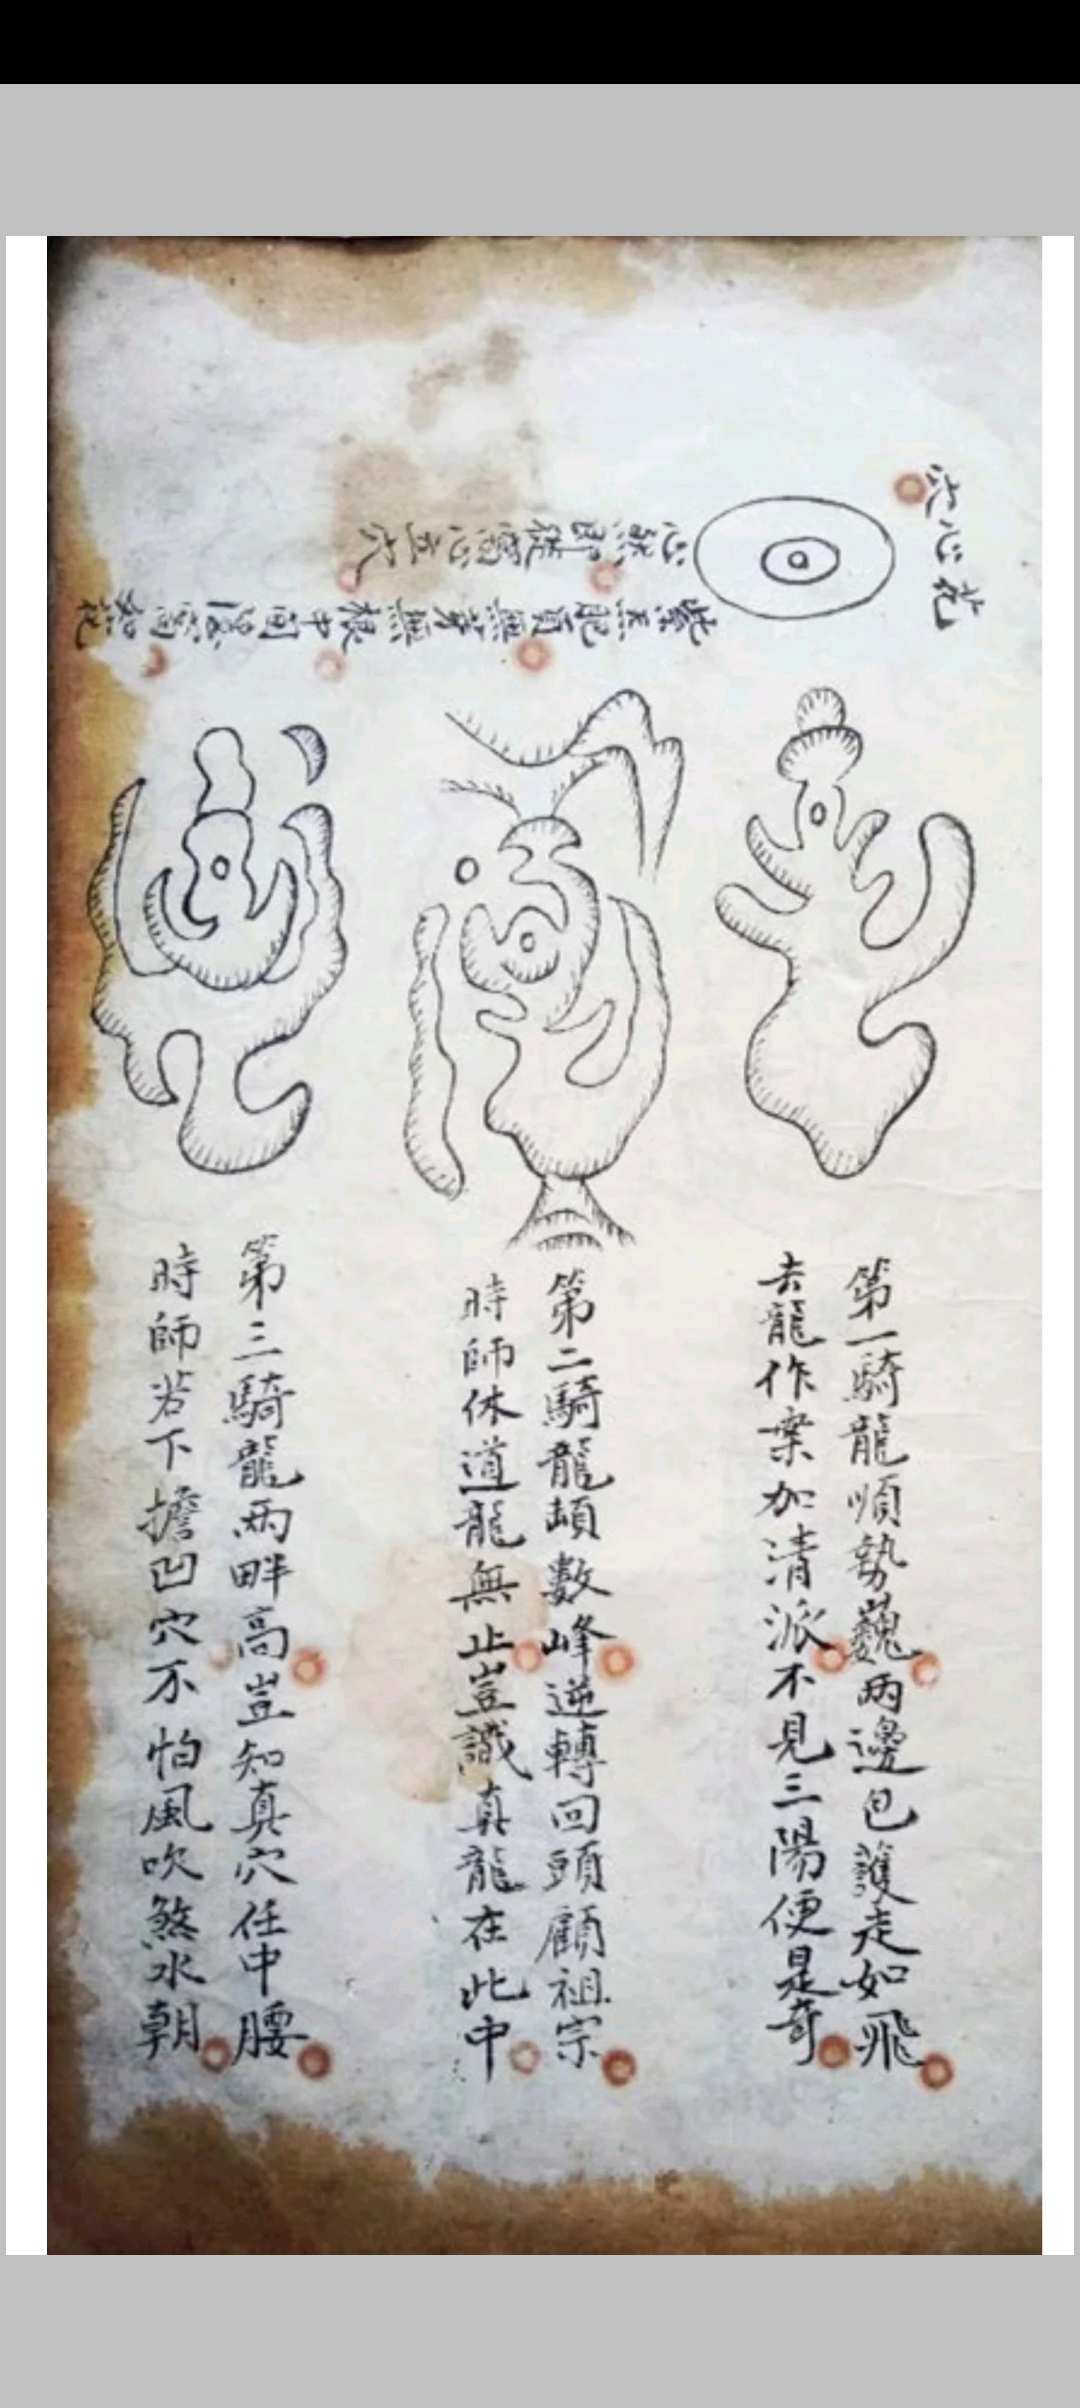 穴心花
第一騎龍順勢巍兩邊包護走如飛
去龍作案加清派不見三陽便是奇
第二騎龍頡數峰逆轉回頭顧祖宗
時師休道龍無止豈識真龍在此中
第三騎龍兩畔高豈知真穴任中腰
時師若下擔凹穴不怕風吹煞水朝